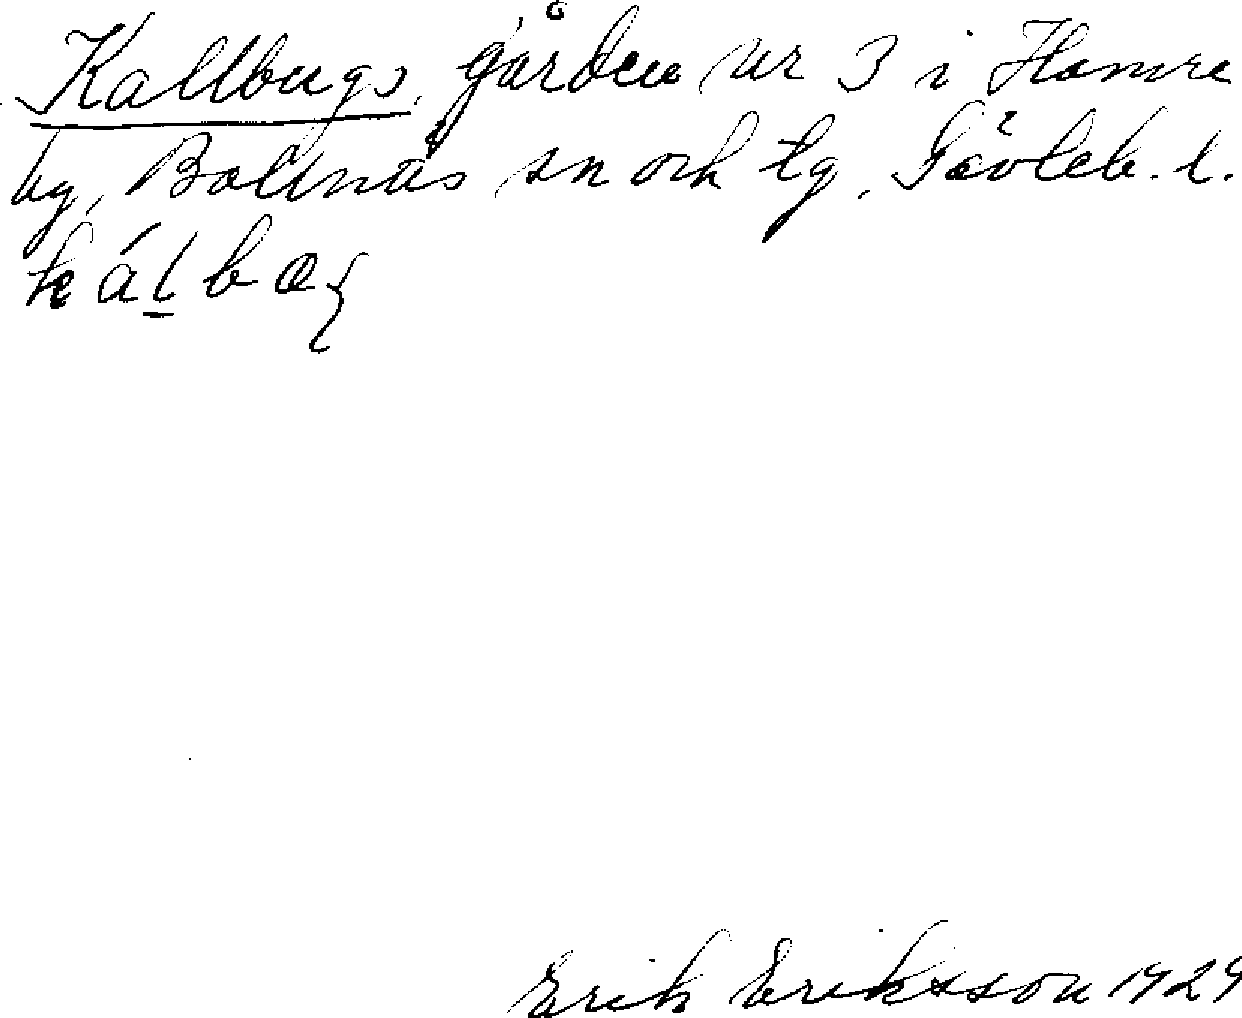 Kallbergs, gården nr 3 i Hamre
by, Bollnäs sn och tg, Gävleb. l.
kálbæɼ
Erik Eriksson 1929